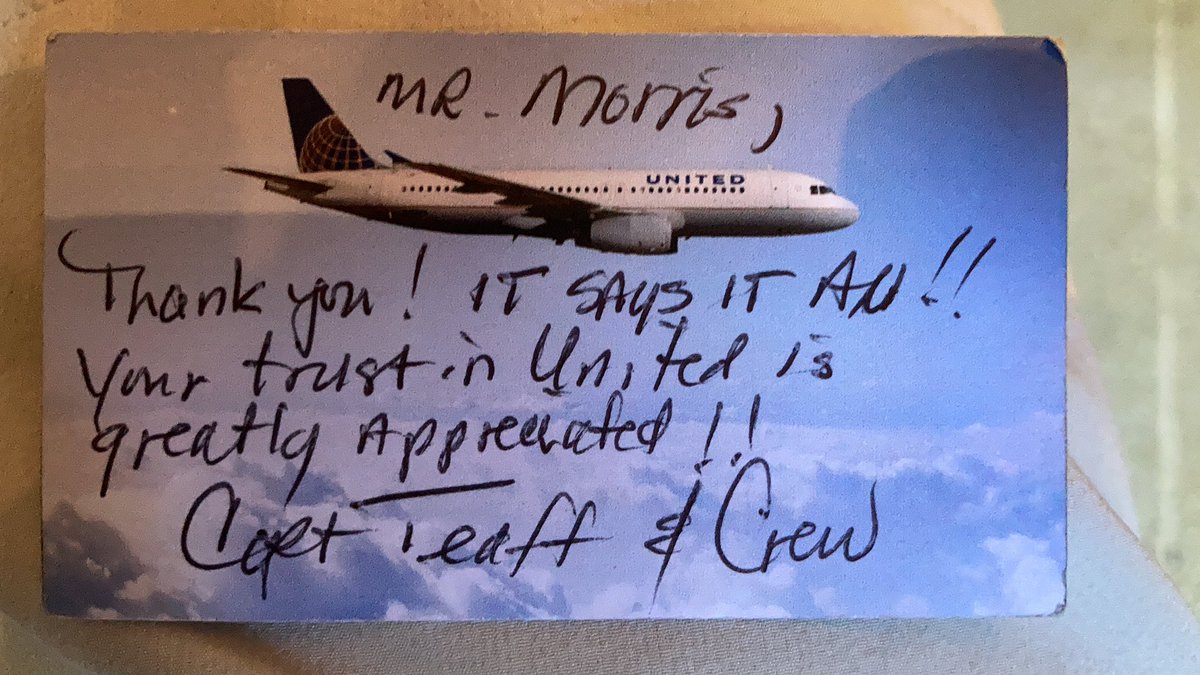 MR. Morris,
UNITED
Thank you! IT SAYS IT All!!
Your trust in United is
greatly Appreciated!!
Capt Teaff & Crew